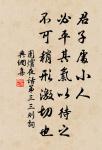 君子處小人
必平其氣以待之
不可稍形激切也
圍爐夜話第三三則句
典佃集